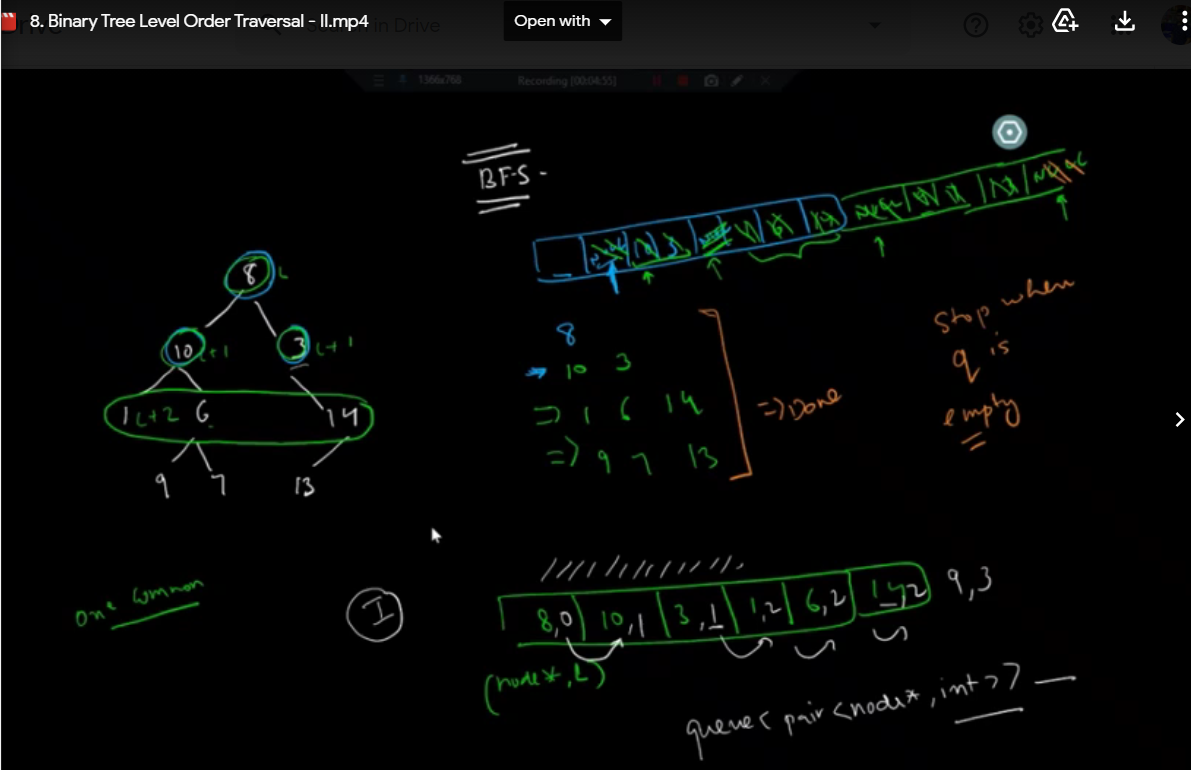 8. Binary Tree Level Order Traversal - II.mp4
Open with
in Drive
1366x768
Recording [00:04:55]
BFS -
8 L
10 L+1 3 L+1
1 L+2 6 14
9 7 13
8
10 3
=> 1 6 14
=> 9 7 13
=> Done
Stop when
q is
empty
one common
I
8,0 10,1 3,1 1,2 6,2 14,2 9,3
(node*, L)
queue< pair <node*, int>>